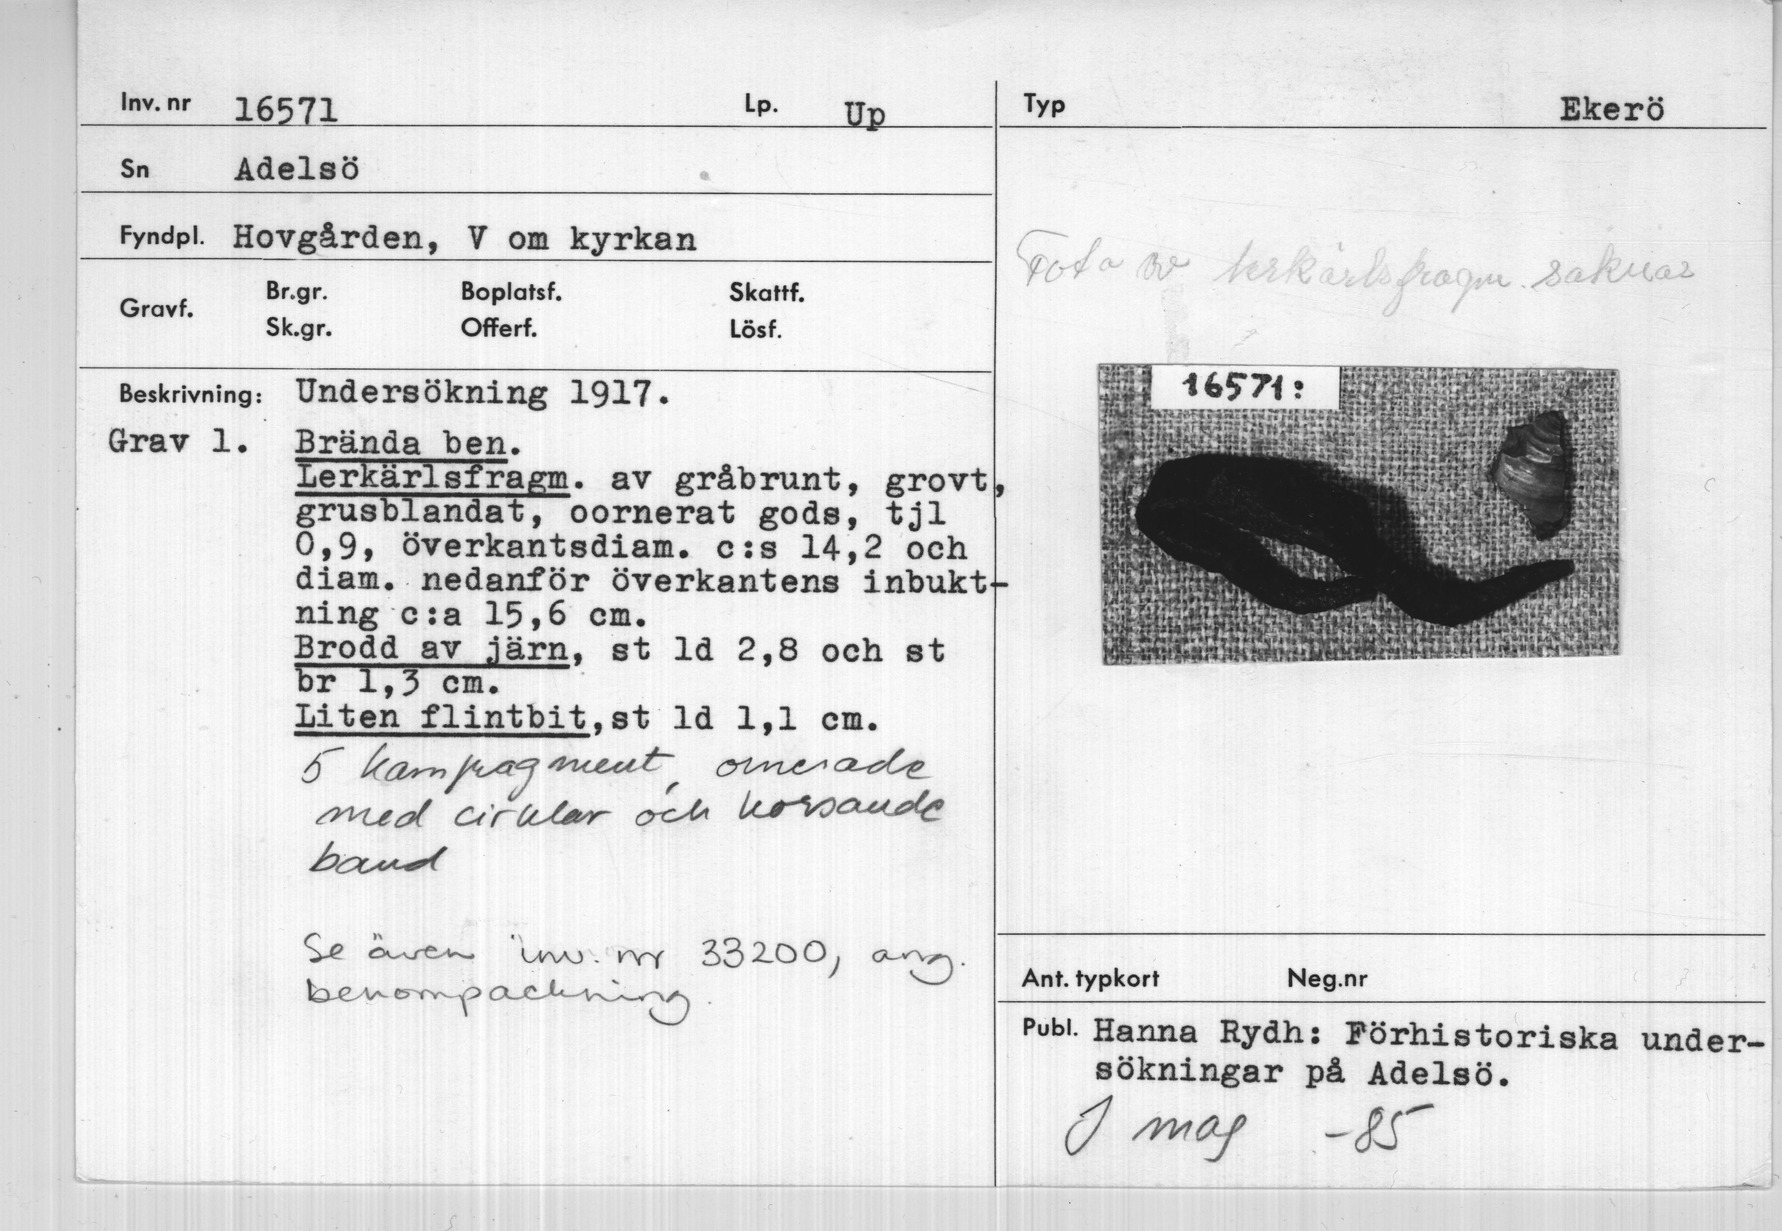 Inv. nr 16571 Lp. Up
Sn Adelsö
Fyndpl. Hovgården, V om kyrkan
Gravf. Br.gr. Boplatsf. Skattf.
Sk.gr. Offerf. Lösf.
Beskrivning: Undersökning 1917.
Grav 1. Brända ben.
Lerkärlsfragm. av gråbrunt, grovt,
grusblandat, oornerat gods, tjl
0,9, överkantsdiam. c:s 14,2 och
diam. nedanför överkantens inbukt-
ning c:a 15,6 cm.
Brodd av järn, st ld 2,8 och st
br 1,3 cm.
Liten flintbit, st ld 1,1 cm.
5 kamfragment, ornerade
med cirklar och korsande
band
Se även inv. nr 33200, ang.
benompackning.
Typ Ekerö
Foto av lerkärlsfragm. saknas
16571:
Ant. typkort Neg.nr
Publ. Hanna Rydh: Förhistoriska under-
sökningar på Adelsö.
J mag -85